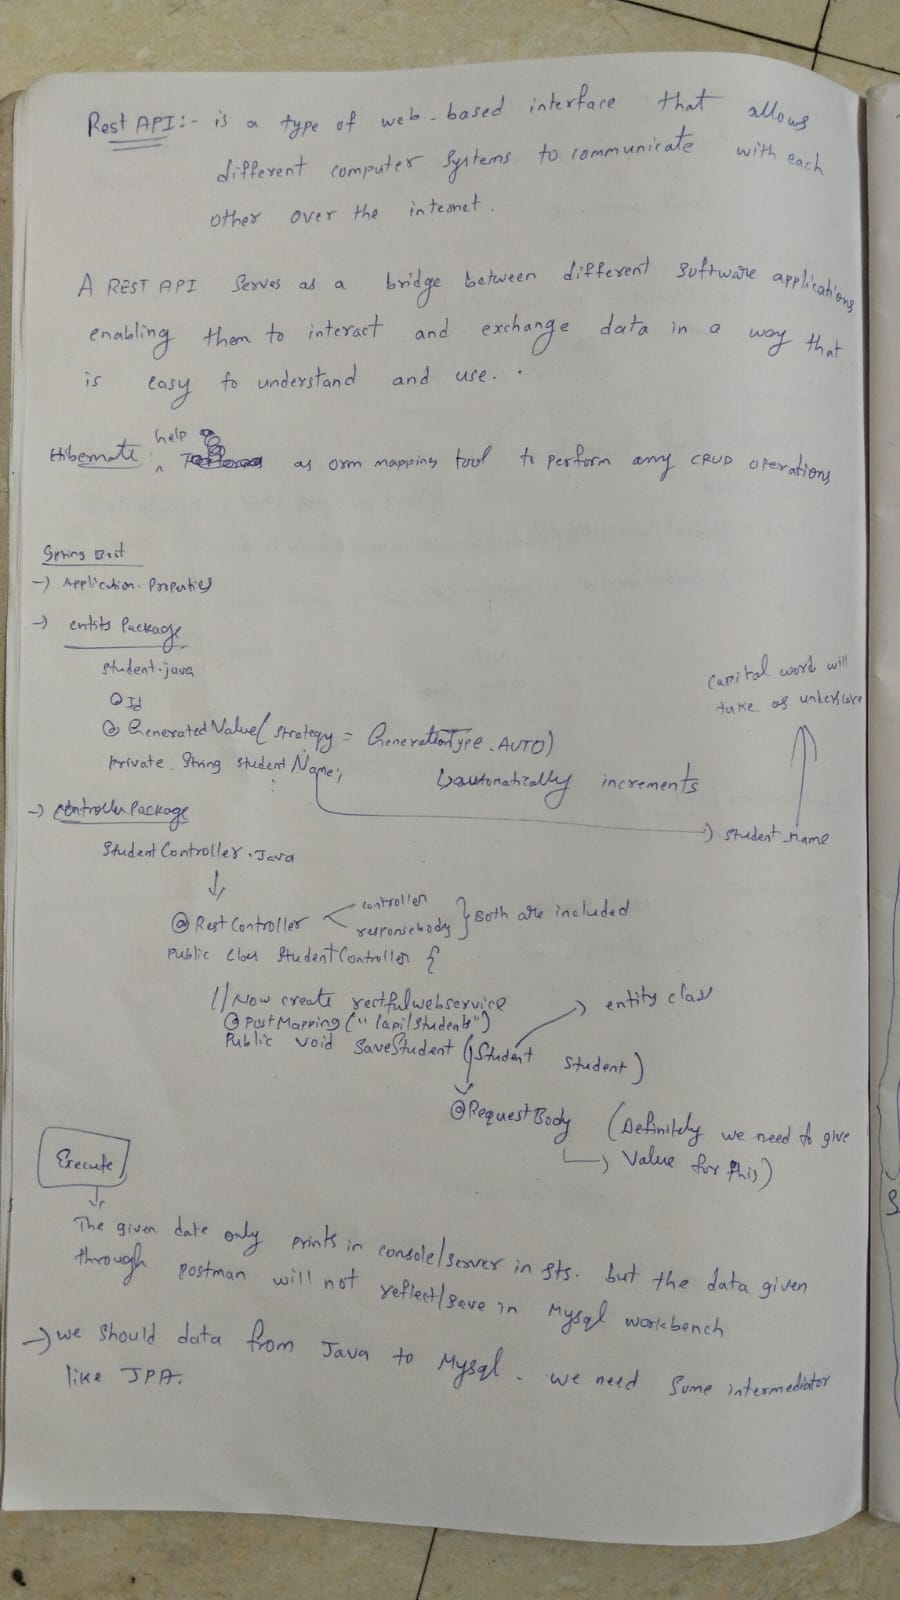 Rest API:- is a type of web-based interface that allows
different computer systems. to communicate with each
other over the internet.
A REST API Serves as a bridge between different software applications
enabling them to interact and exchange data in a way that
is easy to understand and use.
Hibernate: help as orm mapping tool to perform any CRUD operations
Spring Boot
-> Application. Properties
-> entity Package
Student.java
@Id
@ GeneratedValue( strategy = GenerationType.AUTO)
private String studentName;
↳automatically increments
capital word will
take as underscore
-> student_name
-> controller Package
StudentController.Java
@RestController
controller
responsebody
} Both are included
Public class StudentController {
//Now create restfulwebservice
@PostMapping("/api/students")
Public void SaveStudent (Student student)
-> entity class
@RequestBody (Definitely we need to give
Value for this)
Execute
The given data only prints in console/server in sts. but the data given
through postman will not reflect/save in Mysql workbench
-> we should data from Java to Mysql. we need some intermediator
like JPA.